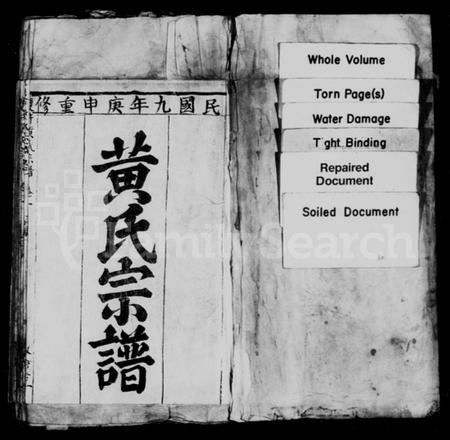 民國九年庚申重修
黃氏宗譜
Whole Volume
Torn Page(s)
Water Damage
Tight Binding
Repaired
Document
Soiled Document
FamilySearch